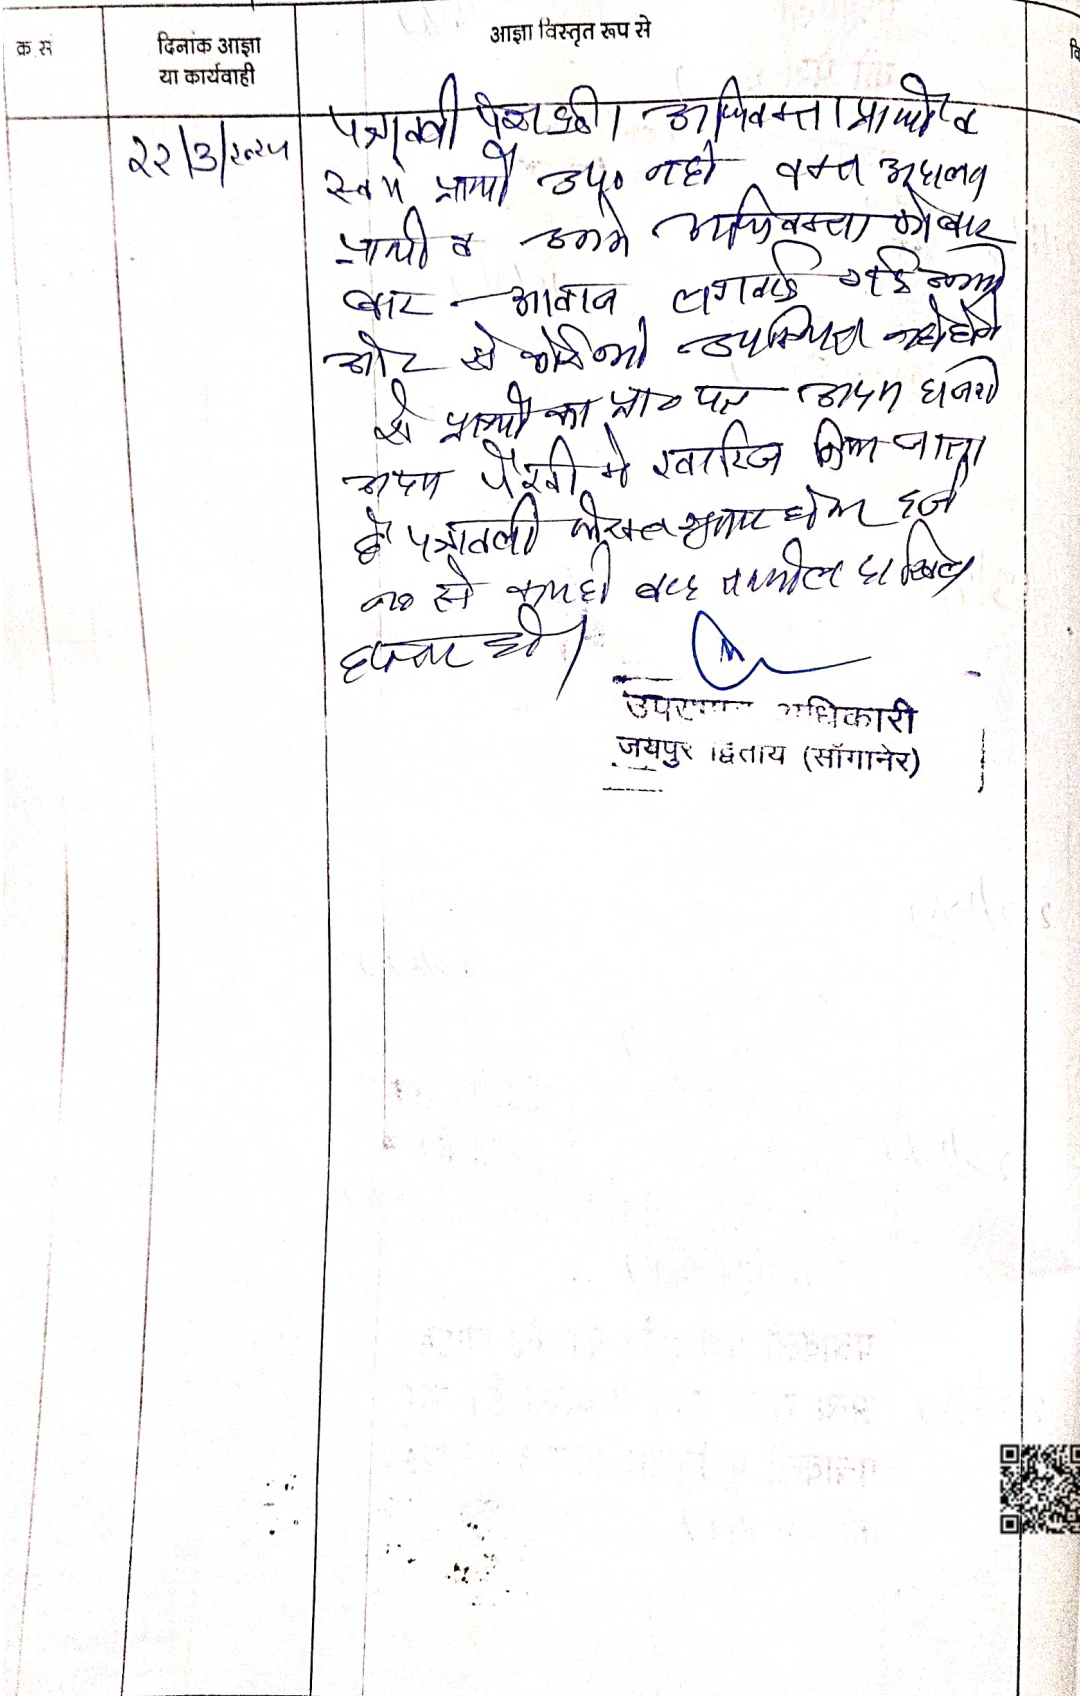 क्र.सं
दिनांक आज्ञा
या कार्यवाही
आज्ञा विस्तृत रूप से
वि
२२/3/२०२५
पत्रावली पेश हुई। अभिवक्ता प्रार्थी व
स्वयं प्रार्थी उप० नही वक्त अदालत
प्रार्थी व उनके अभिवक्ता को बार
बार आवाज लगवाई गई उनकी
ओर से कोई भी उपस्थित नही होने
से प्रार्थी का प्रा० पत्र अदम हाजरी
अदम पैरवी मे खारिज किया जाता
है पत्रावली फैसल शुमार होकर दर्ज
न० से कम हो बाद तकमील दाखिल
दफ्तर हो।
उपखण्ड अधिकारी
जयपुर द्वितीय (सॉगानेर)